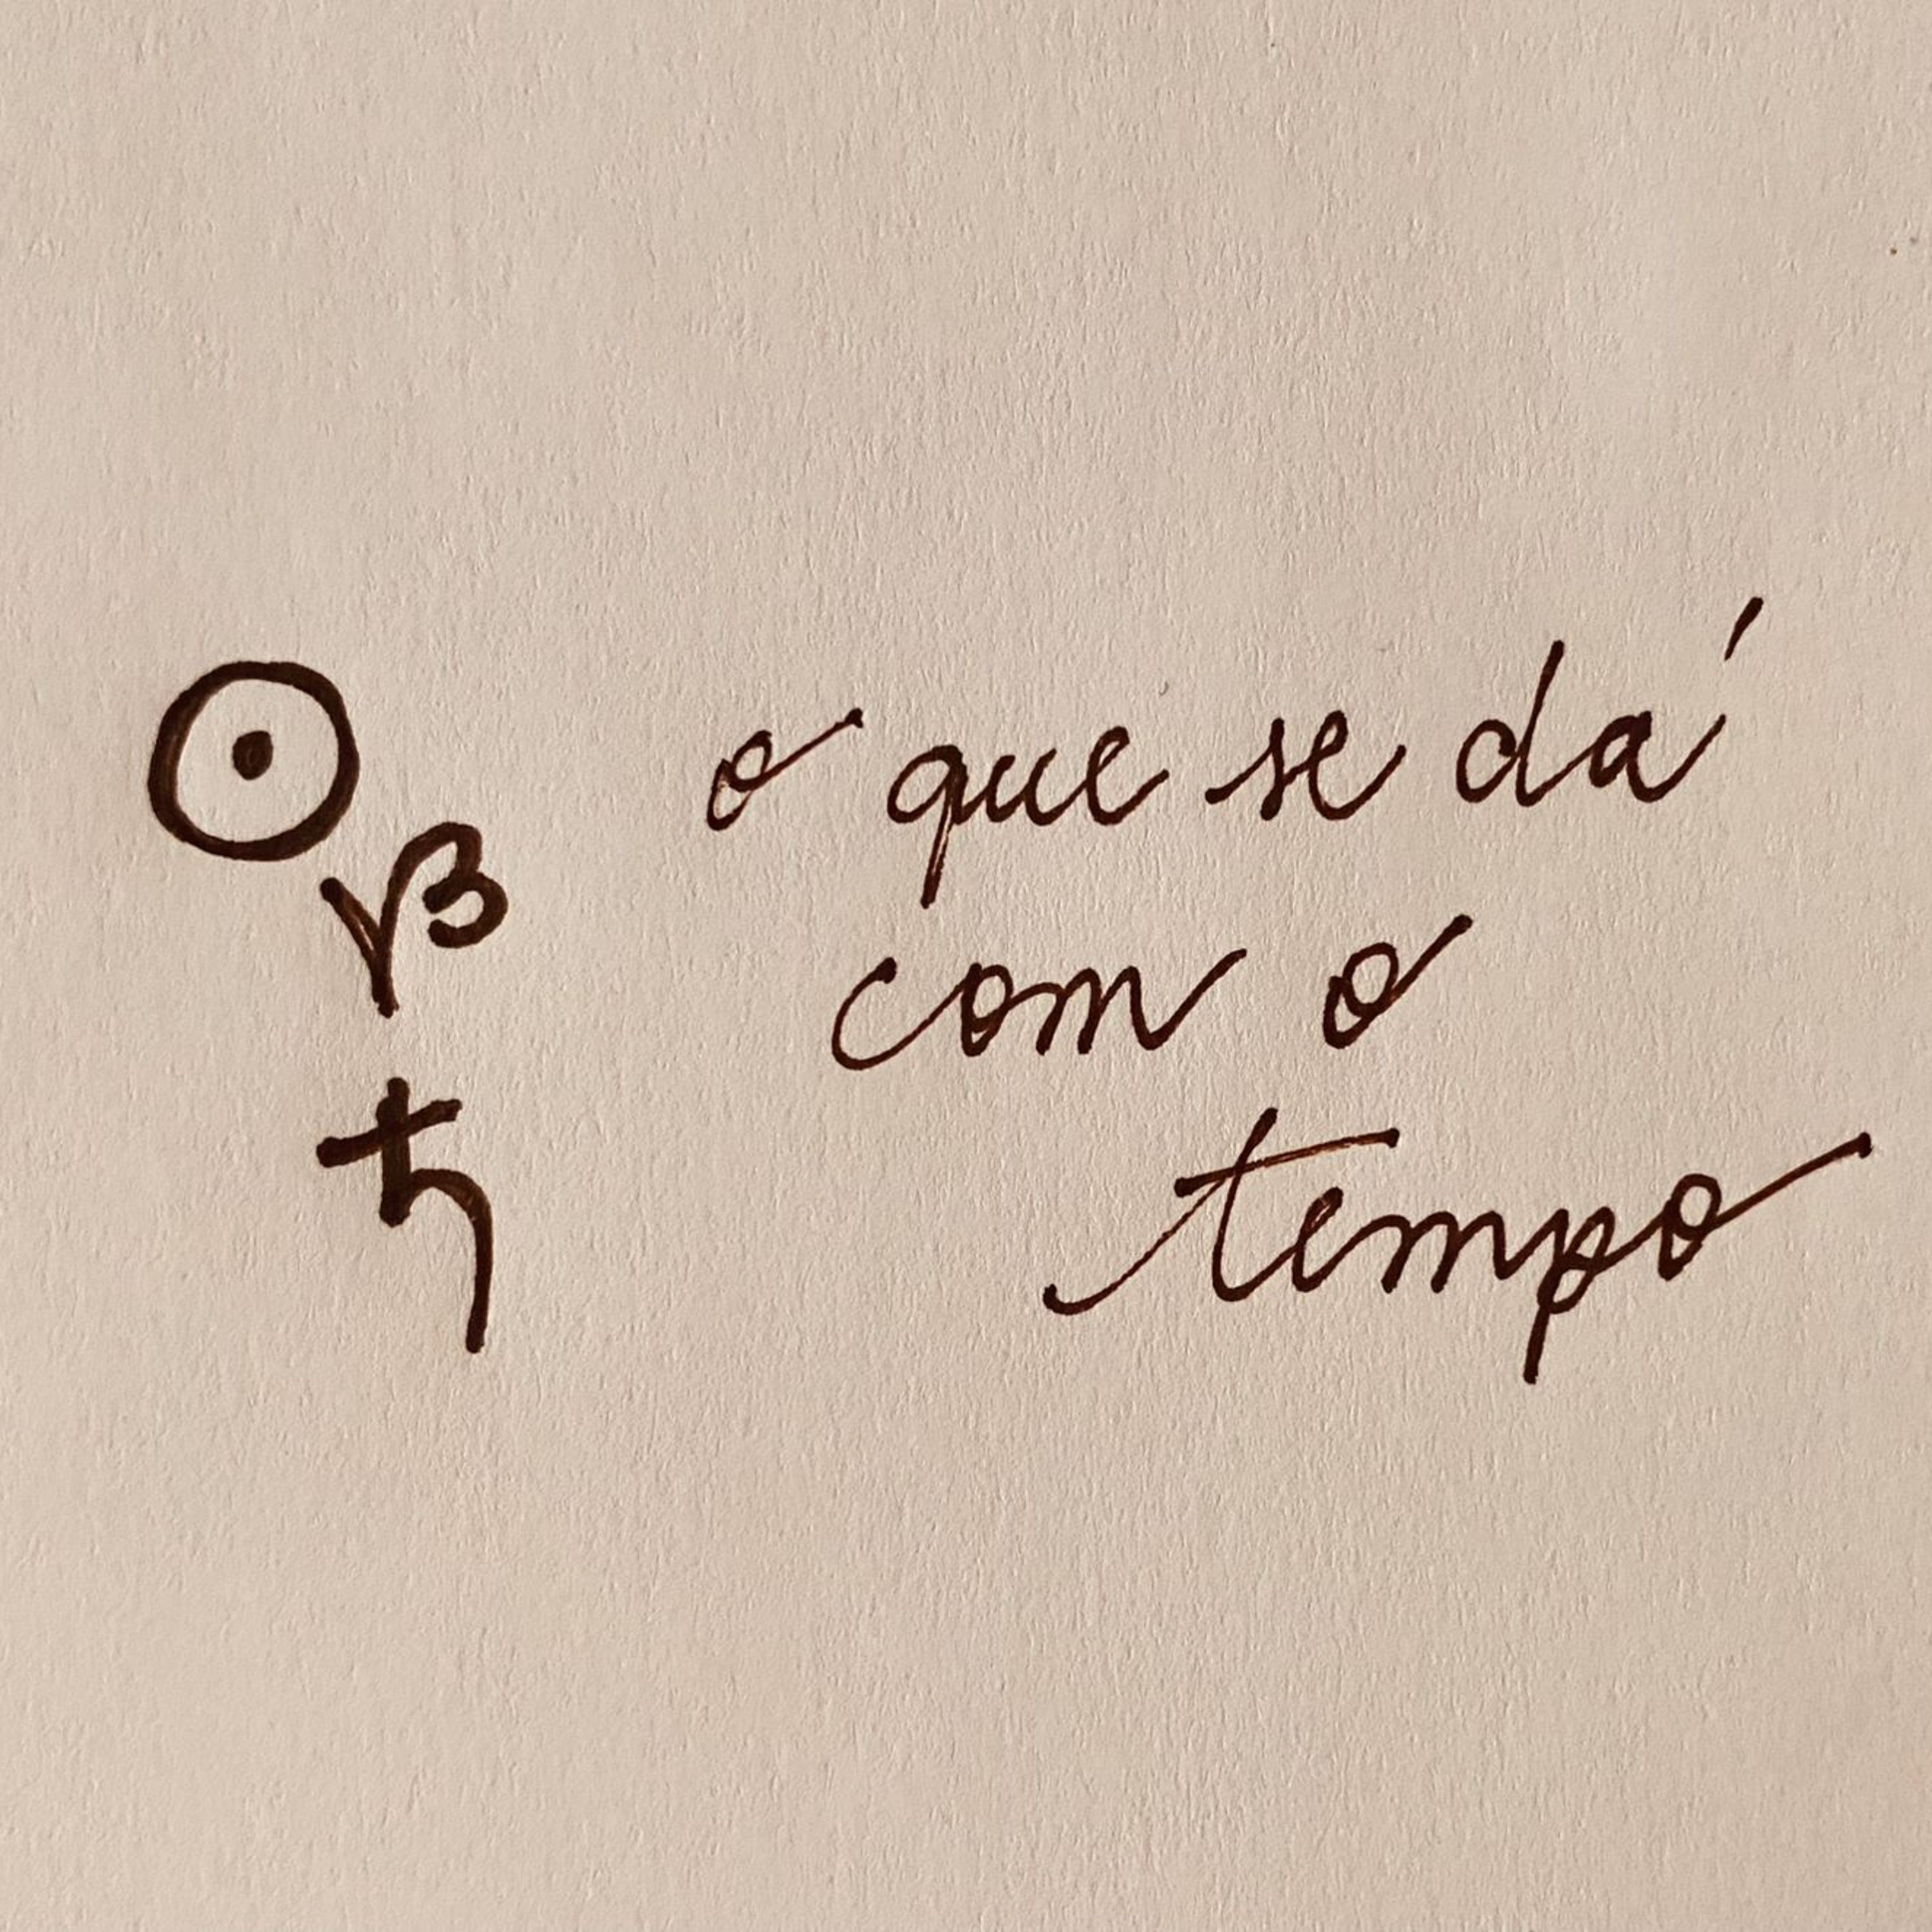 o que se dá
com o
tempo